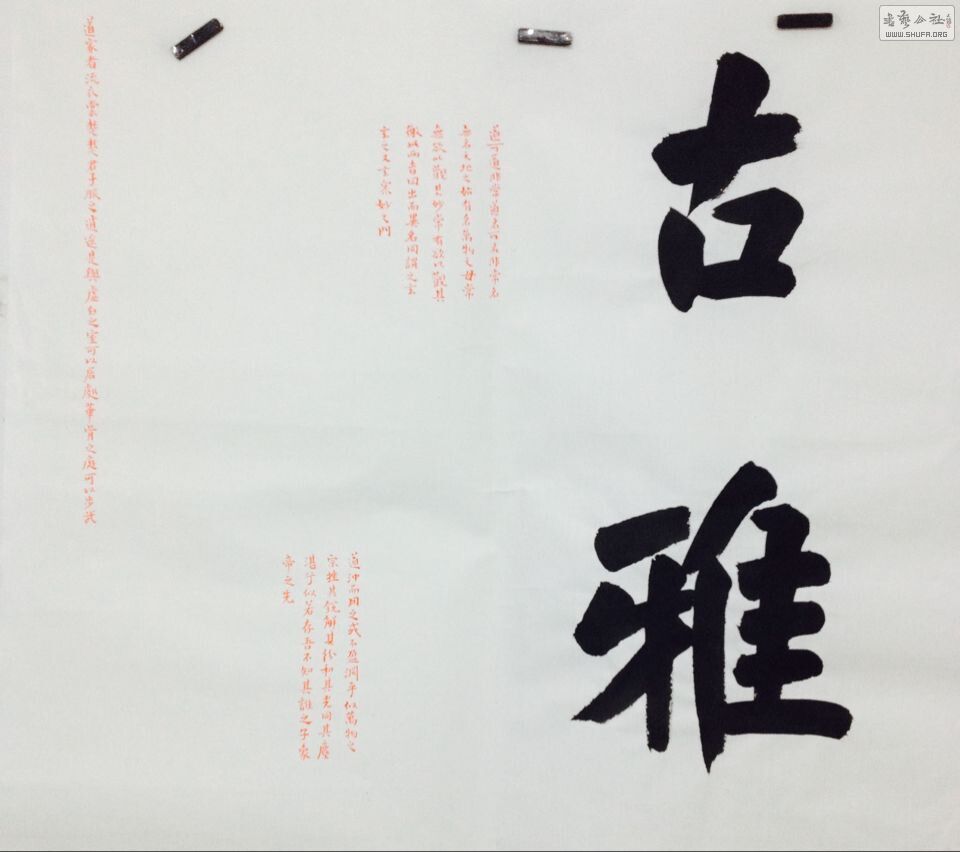 古雅
道可道非常道名可名非常名
無名天地之始有名萬物之母常
無欲以觀其妙常有欲以觀其
徼此兩者同出而異名同謂之玄
玄之又玄衆妙之門
道沖而用之或不盈淵乎似萬物之
宗挫其銳解其紛和其光同其塵
湛兮似若存吾不知其誰之子象
帝之先
道家者流衣裳楚楚君子服之逍遙是與虛白之室可以居處華胥之庭可以步武
書藝公社
WWW.SHUFA.ORG